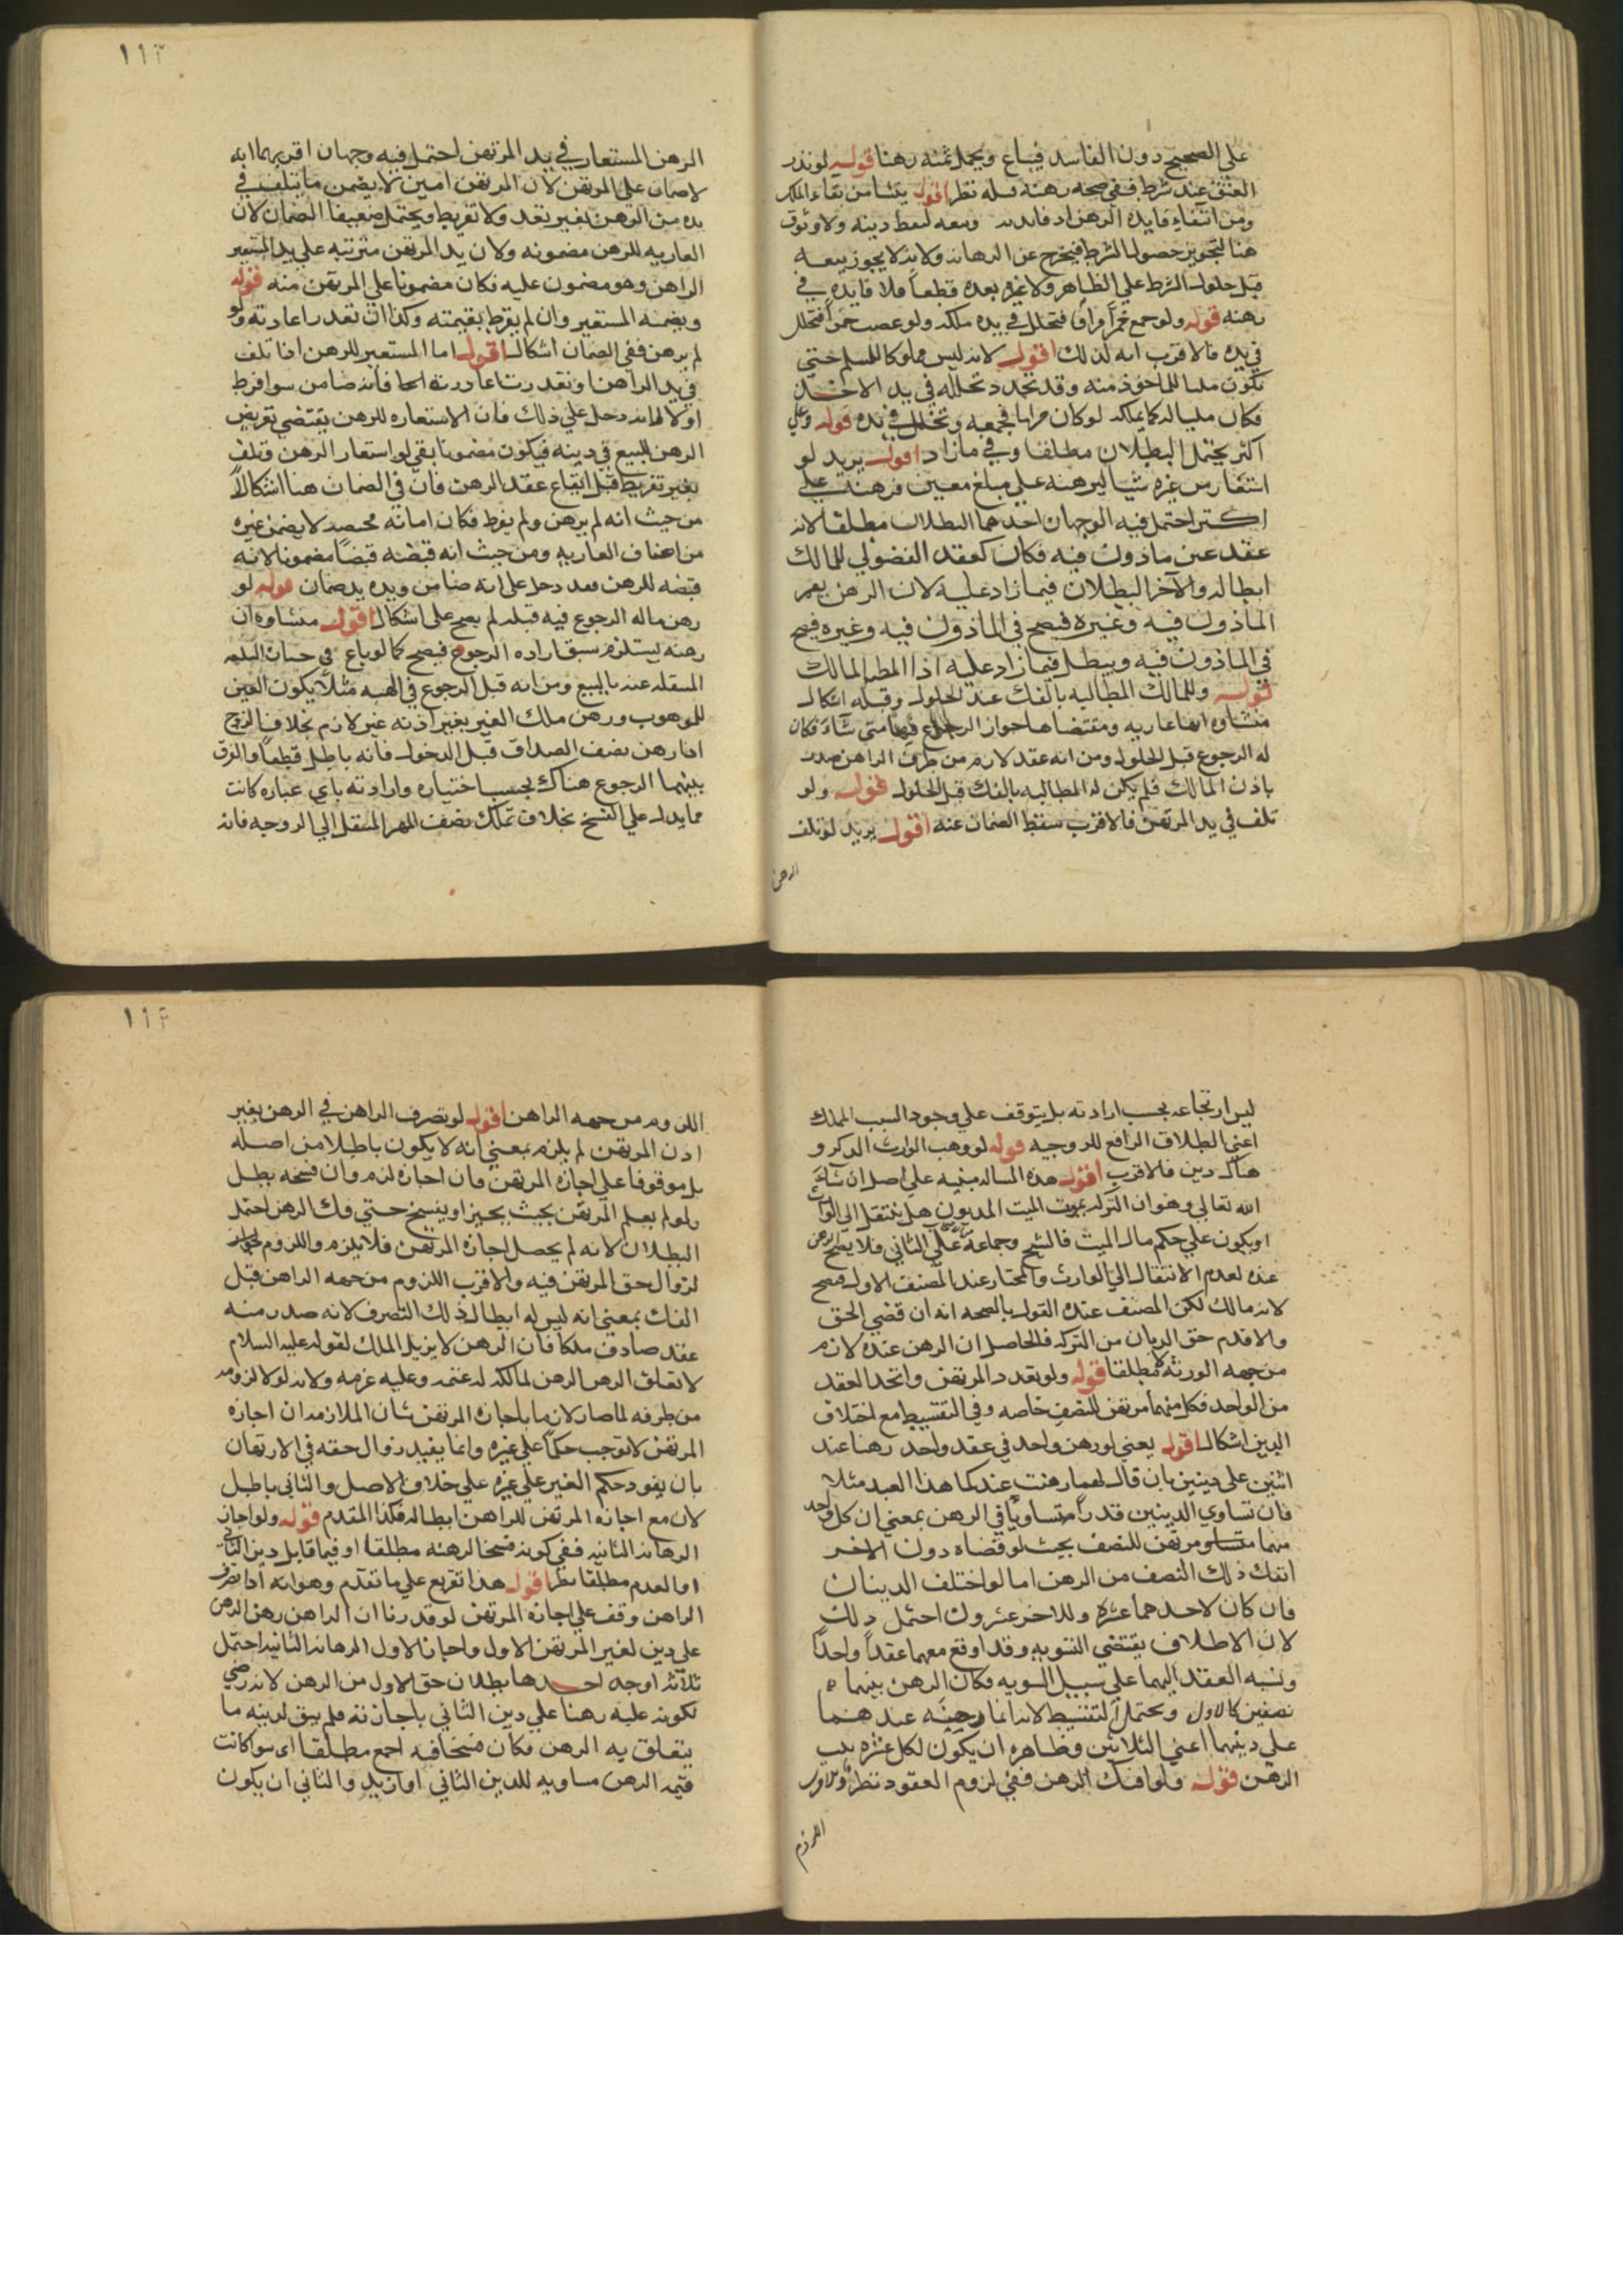 على الصحيح دون الفاسد فيباع ويجعل ثمنه رهنا قوله لو نذر
العتق عند شرط ففي صحه رهنه قبله نظر اقول ينشا من بقاء الملك
ومن انتفاء فايده الرهن اذ فايدته ولا وثوق
هنا لتجويز حصول الشرط فيخرج عن الرهانه ولانه لا يجوز بيعه
قبل حلول الشرط على الظاهر ولا غيره بعده قطعا فلا فايده في
رهنه قوله ولو جمع خمرا مراقا فتخلل في يده ملكه ولو غصب خمرا فتخلل
في يده فالاقرب انه كذلك اقول لانه ليس مملوكا للمسلم حتى
يكون ملكا للماخوذ منه وقد تجدد تخلله في يد الاخذ
فكان ملكا له كما يملكه لو كان مراقا فجمعه وتخلل في يده قوله وعلى
اكثر يحتمل البطلان مطلقا وفي ما زاد اقول يريد لو
استعار من غيره شيا ليرهنه على مبلغ معين فرهنه على
اكثر احتمل فيه الوجهان احدهما البطلان مطلقا لانه
عقد غير ماذون فيه فكان كعقد الفضولي للمالك
ابطاله والآخر البطلان فيما زاد عليه لان الرهن يعم
الماذون فيه وغيره فيصح في الماذون فيه وغيره فيصح
في الماذون فيه ويبطل فيما زاد عليه اذا ابطله المالك
قوله وللمالك المطالبه بالفك عند الحلول وقبله اشكال
منشاوه انها عاريه ومقتضاها جواز الرجوع فيها متى شاء فكان
له الرجوع قبل الحلول ومن انه عقد لازم من طرف الراهن صدر
باذن المالك فلم يكن له المطالبه بالفك قبل الحلول قوله ولو
تلف في يد المرتهن فالاقرب سقط الضمان عنه اقول يريد لو تلف
الرهن
١١٣
الرهن المستعار في يد المرتهن احتمل فيه وجهان اقربهما انه
لا ضمان على المرتهن لان المرتهن امين لا يضمن ما يتلف في
يده من الرهن بغير تعد ولا تفريط ويحتمل ضعيفا الضمان لان
العاريه للرهن مضمونه ولان يد المرتهن مترتبه على يد المستعير
الراهن وهو مضمون عليه فكان مضمونا على المرتهن منه قوله
ويضمنه المستعير وان لم يفرط بقيمته وكذا ان تعذر اعادته ولو
لم يرهن ففي الضمان اشكال اقول اما المستعير للرهن اذا تلف
في يد الراهن او تعذرت اعادته فانه ضامن سوا فرط
او لا لانه دخل على ذلك فان الاستعاره للرهن يقتضي تعريض
الرهن للبيع في دينه فيكون مضمونا بقي لو استعار الرهن وتلف
بغير تفريط قبل ايقاع عقد الرهن فان في الضمان هنا اشكالا
من حيث انه لم يرهن ولم يفرط فكان امانه محضه لا يضمن غيره
من اصناف العاريه ومن حيث انه قبضه قبضا مضمونا لانه
قبضه للرهن فقد دخل على انه ضامن ويده يد ضمان قوله لو
رهن ماله الرجوع فيه قبله لم يصح على اشكال اقول منشاوه ان
رهنه يستلزم سبق اراده الرجوع فيصح كما لو باع في
المنتقله عنه بالبيع ومن انه قبل الرجوع في الهبه مثلا يكون العين
للموهوب ورهن ملك الغير بغير اذنه غير لازم بخلاف الزوج
اذا رهن نصف الصداق قبل الدخول فانه باطل قطعا والفرق
بينهما الرجوع هناك بحسب اختياره وارادته باي عباره كانت
مما يدل على الفسخ بخلاف تملك نصف المهر المنتقل الى الزوجه فانه
ليس ارتجاعه بحسب ارادته بل يتوقف على وجود السبب المملك
اعني الطلاق الرافع للزوجيه قوله لو وهب الوارث التركه و
هناك دين فالاقرب اقول هذه المساله مبنيه على اصل ان شاء
الله تعالى وهو ان التركه بموت الميت المديون هل ينتقل الى الوارث
او يكون على حكم مال الميت فالشيخ وجماعه على الثاني فلا يصح الرهن
عنده لعدم الانتقال الى الوارث والمختار عند المصنف الاول فيصح
لانه مالك لكن المصنف عنده القول بالصحه انه ان قضى الحق
والا قدم حق الديان من التركه فالحاصل ان الرهن عنده لازم
من جهه الورثه لا مطلقا قوله ولو تعدد المرتهن واتحد العقد
من الواحد فكل منهما مرتهن للنصف خاصه وفي التقسيط مع اختلاف
الدين اشكال اقول يعني لو رهن واحد في عقد واحد رهنا عند
اثنين على دينين بان قال لهما رهنت عندكما هذا العبد مثلا
فان تساوي الدينين قدرا تساويا في الرهن بمعنى ان كل واحد
منهما مرتهن للنصف بحيث لو قضاه دون الاخر
انفك ذلك النصف من الرهن اما لو اختلف الدينان
فان كان لاحدهما عشره وللاخر عشرون احتمل ذلك
لان الاطلاق يقتضي التسويه وقد اوقع معهما عقدا واحدا
ونسبه العقد اليهما على سبيل السويه فكان الرهن بينهما
نصفين كالاول ويحتمل التقسيط لانه انما رهنه عندهما
على دينهما اعني الثلاثين وظاهره ان يكون لكل عشره ثلث
الرهن قوله ولو افتك الرهن ففي لزوم العقود نظر
اللزوم
١١٤
اللزوم من جهه الراهن اقول لو تصرف الراهن في الرهن بغير
اذن المرتهن لم يلزم بمعنى انه لا يكون باطلا من اصله
بل موقوفا على اجازه المرتهن فان اجازه لزم وان فسخه بطل
ولو لم يعلم المرتهن بحيث يجيز او يفسخ حتى فك الرهن احتمل
البطلان لانه لم يحصل اجازه المرتهن فلا يلزم واللزوم
لزوال حق المرتهن فيه والاقرب اللزوم من جهه الراهن قبل
الفك بمعنى انه ليس له ابطال ذلك التصرف لانه صدر منه
عقد صادف ملكا فان الرهن لا يزيل الملك لقوله عليه السلام
لا يغلق الرهن الرهن لمالكه له غنمه وعليه غرمه ولانه لولا لزومه
من طرفه لما صار لازما باجازه المرتهن بيان الملازمه ان اجازه
المرتهن لا توجب حكما على غيره وانما يفيد زوال حقه في الارتهان
بان يقود حكم الغير على غيره على خلاف الاصل والثاني باطل
لان مع اجازه المرتهن ليس للراهن ابطاله فكذا المقدم قوله ولو اجاز
الرهانه الثانيه ففي كونه فسخا لرهنه مطلقا او فيما قابل دين الثاني
او العدم مطلقا نظر اقول هذا تفريع على ما تقدم وهو انه اذا تصرف
الراهن وقف على اجازه المرتهن لو قدرنا ان الراهن رهن الرهن
على دين لغير المرتهن الاول واجاز الاول الرهانه الثانيه احتمل
ثلاثه اوجه احدها بطلان حق الاول من الرهن لانه رضي
بكونه عليه رهنا على دين الثاني باجازته فلم يبق لدينه ما
يتعلق به الرهن فكان فسخا فيه اجمع مطلقا اي سوا كانت
قيمه الرهن مساويه للدين الثاني او ازيد والثاني ان يكون